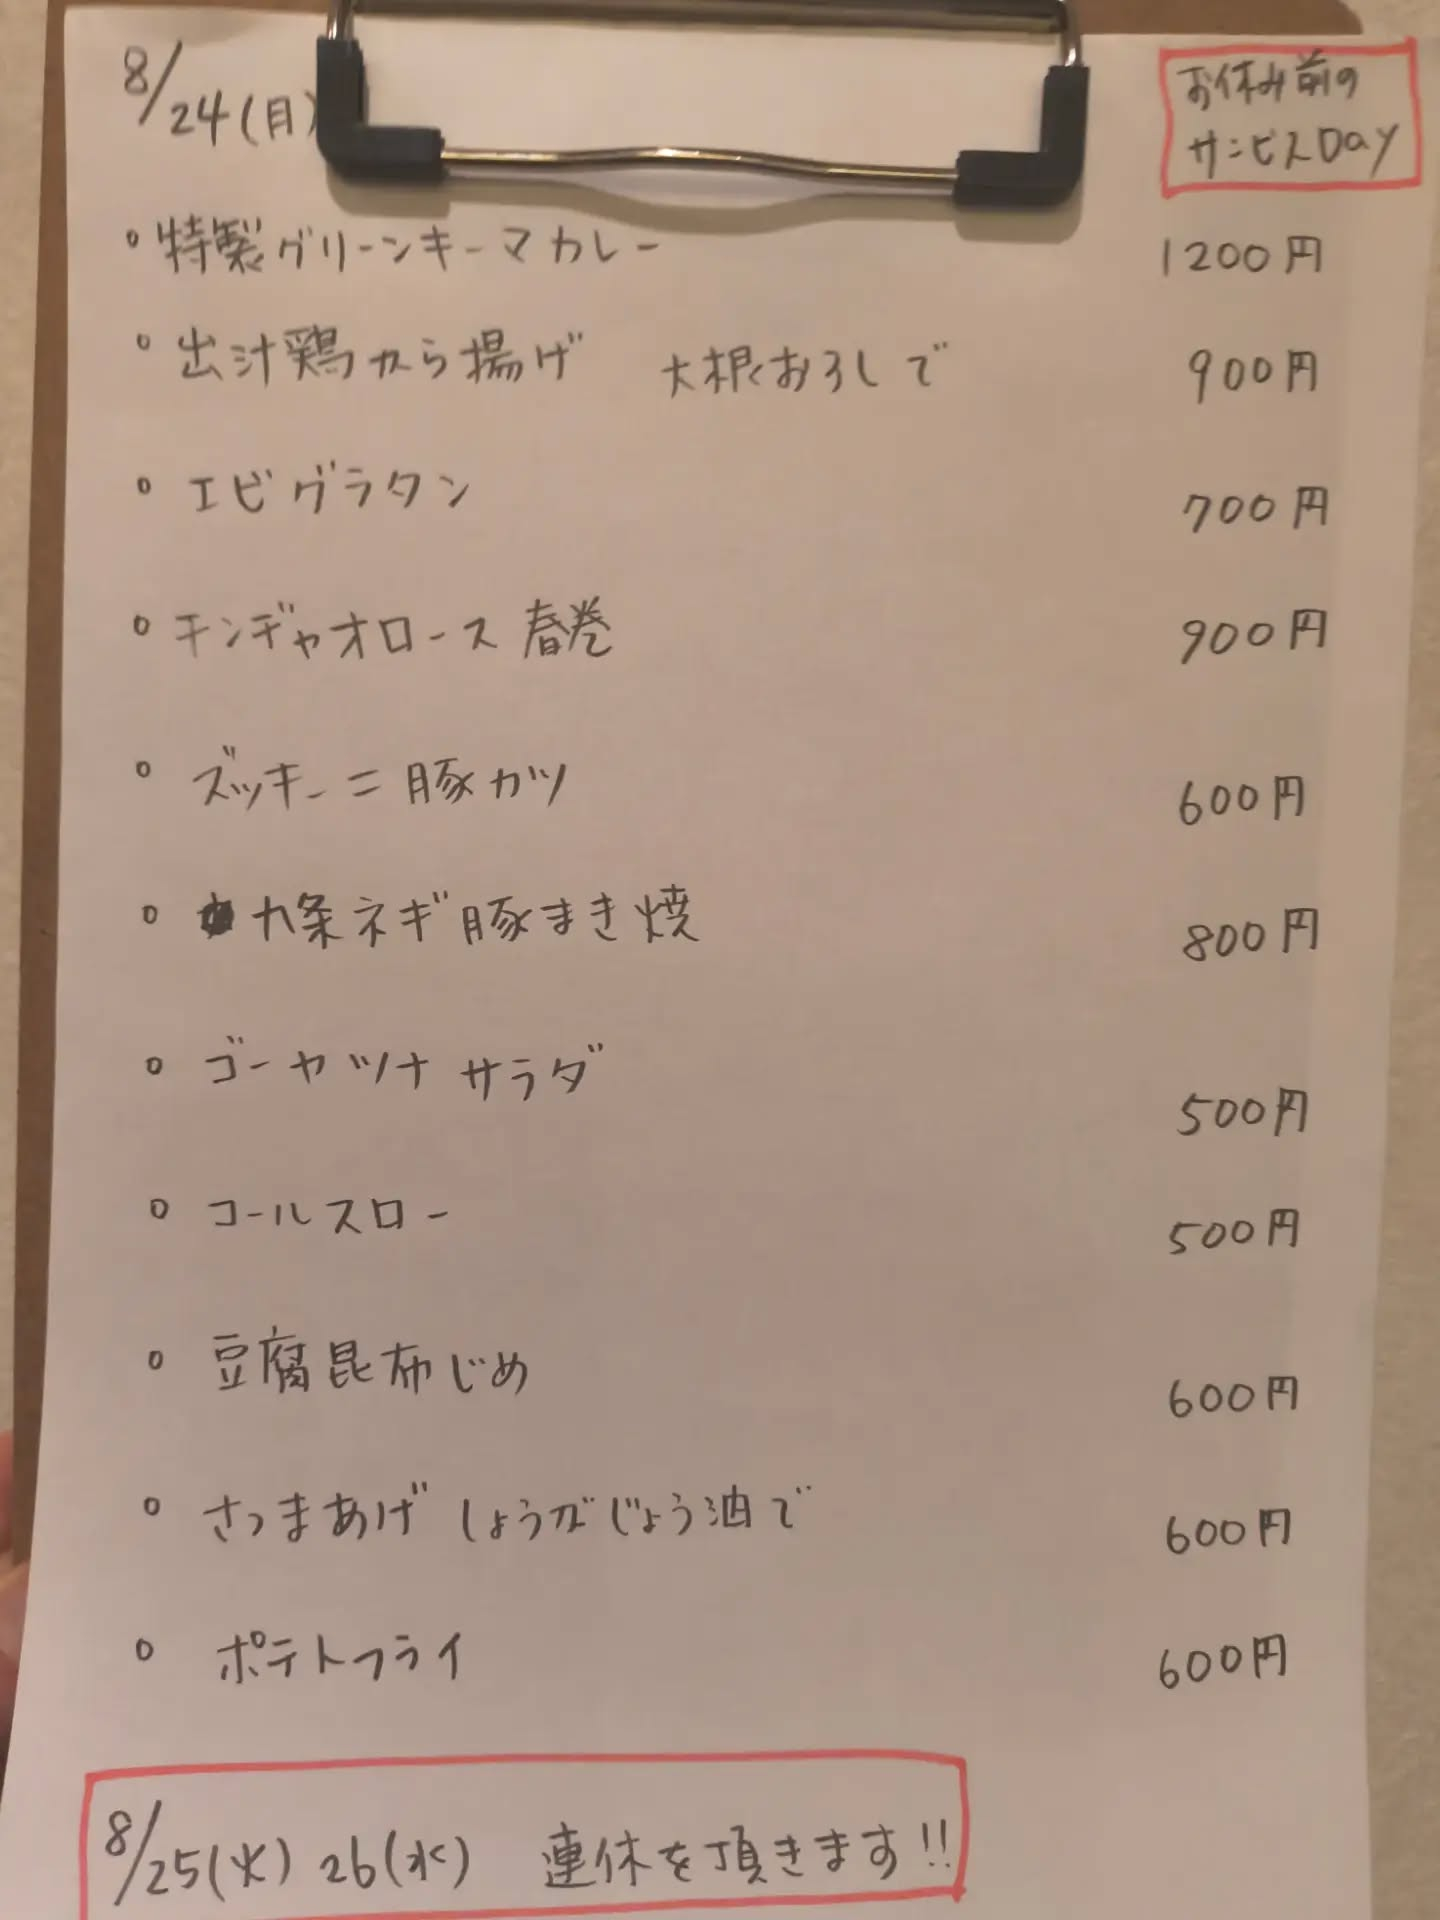 8/24(月)
お休み前の
サービスDay
・特製グリーンキーマカレー 1200円
・出汁鶏から揚げ 大根おろしで 900円
・エビグラタン 700円
・チンヂャオロース春巻 900円
・ズッキーニ豚カツ 600円
・九条ネギ豚まき焼 800円
・ゴーヤツナサラダ 500円
・コールスロー 500円
・豆腐昆布じめ 600円
・さつまあげ しょうがじょう油で 600円
・ポテトフライ 600円
8/25(火) 26(水) 連休を頂きます!!